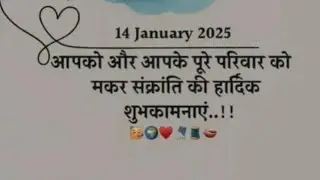 14 January 2025
आपको और आपके पूरे परिवार को
मकर संक्रांति की हार्दिक
शुभकामनाएं..!!